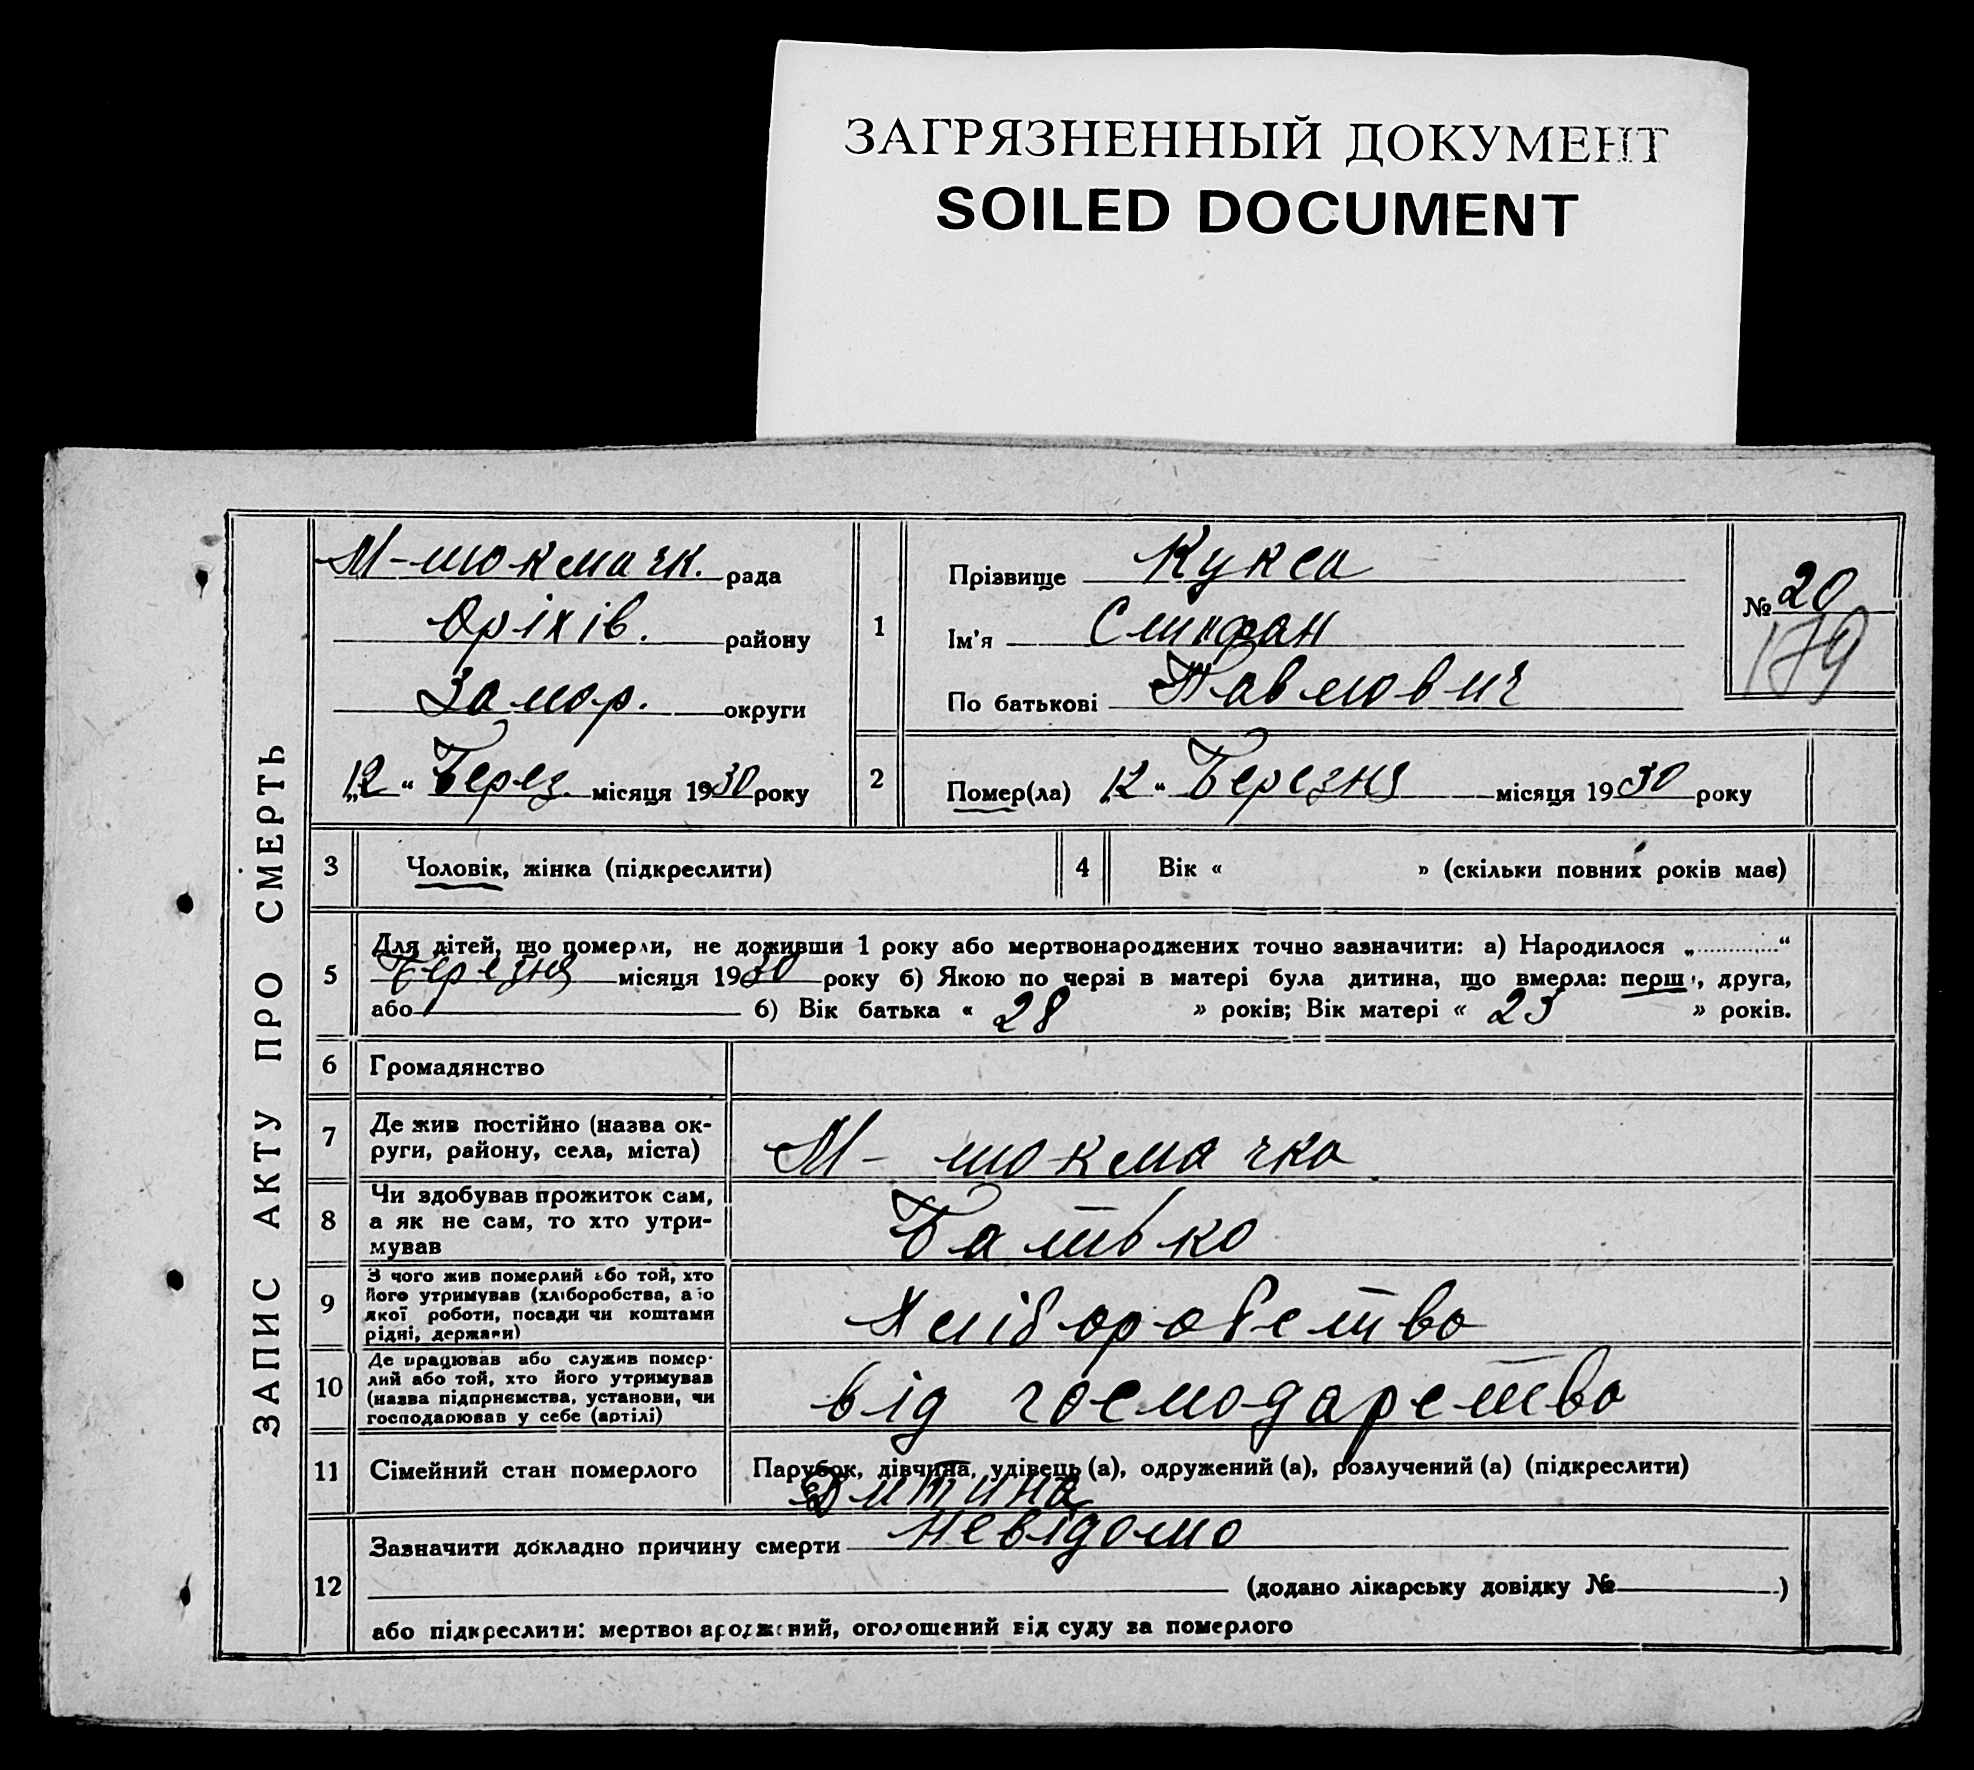 ЗАГРЯЗНЕННЫЙ ДОКУМЕНТ
SOILED DOCUMENT
ЗАПИС АКТУ ПРО СМЕРТЬ
М-токмачк. рада
Оріхів. району
Запор. округи
„12“ Берез. місяця 1930 року
1
Прізвище Кукса
Ім'я Стипан
По батькові Павлович
№ 20
179
2
Помер(ла) 12 “ Березня місяця 1930 року
3 Чоловік, жінка (підкреслити)
4 Вік « » (скільки повних років має)
5 Для дітей, що померли, не доживши 1 року або мертвонароджених точно зазначити: а) Народилося „............“
Березня місяця 1930 року б) Якою по черзі в матері була дитина, що вмерла: перша, друга,
або б) Вік батька « 28 » років; Вік матері « 23 » років.
6 Громадянство
7 Де жив постійно (назва ок-
руги, району, села, міста)
М- токмачка
8 Чи здобував прожиток сам,
а як не сам, то хто утри-
мував
Батько
9 З чого жив померлий або той, хто
його утримував (хліборобства, або
якої роботи, посади чи коштами
рідні, держави)
Хліборобство
10 Де працював або служив помер-
лий або той, хто його утримував
(назва підприємства, установи, чи
господарював у себе (артілі)
від господарство
11 Сімейний стан померлого
Парубок, дівчина, удівець (а), одружений (а), розлучений (а) (підкреслити)
Дитина
12 Зазначити докладно причину смерти Невідомо
(додано лікарську довідку № )
або підкреслити: мертвонароджений, оголошений від суду за померлого